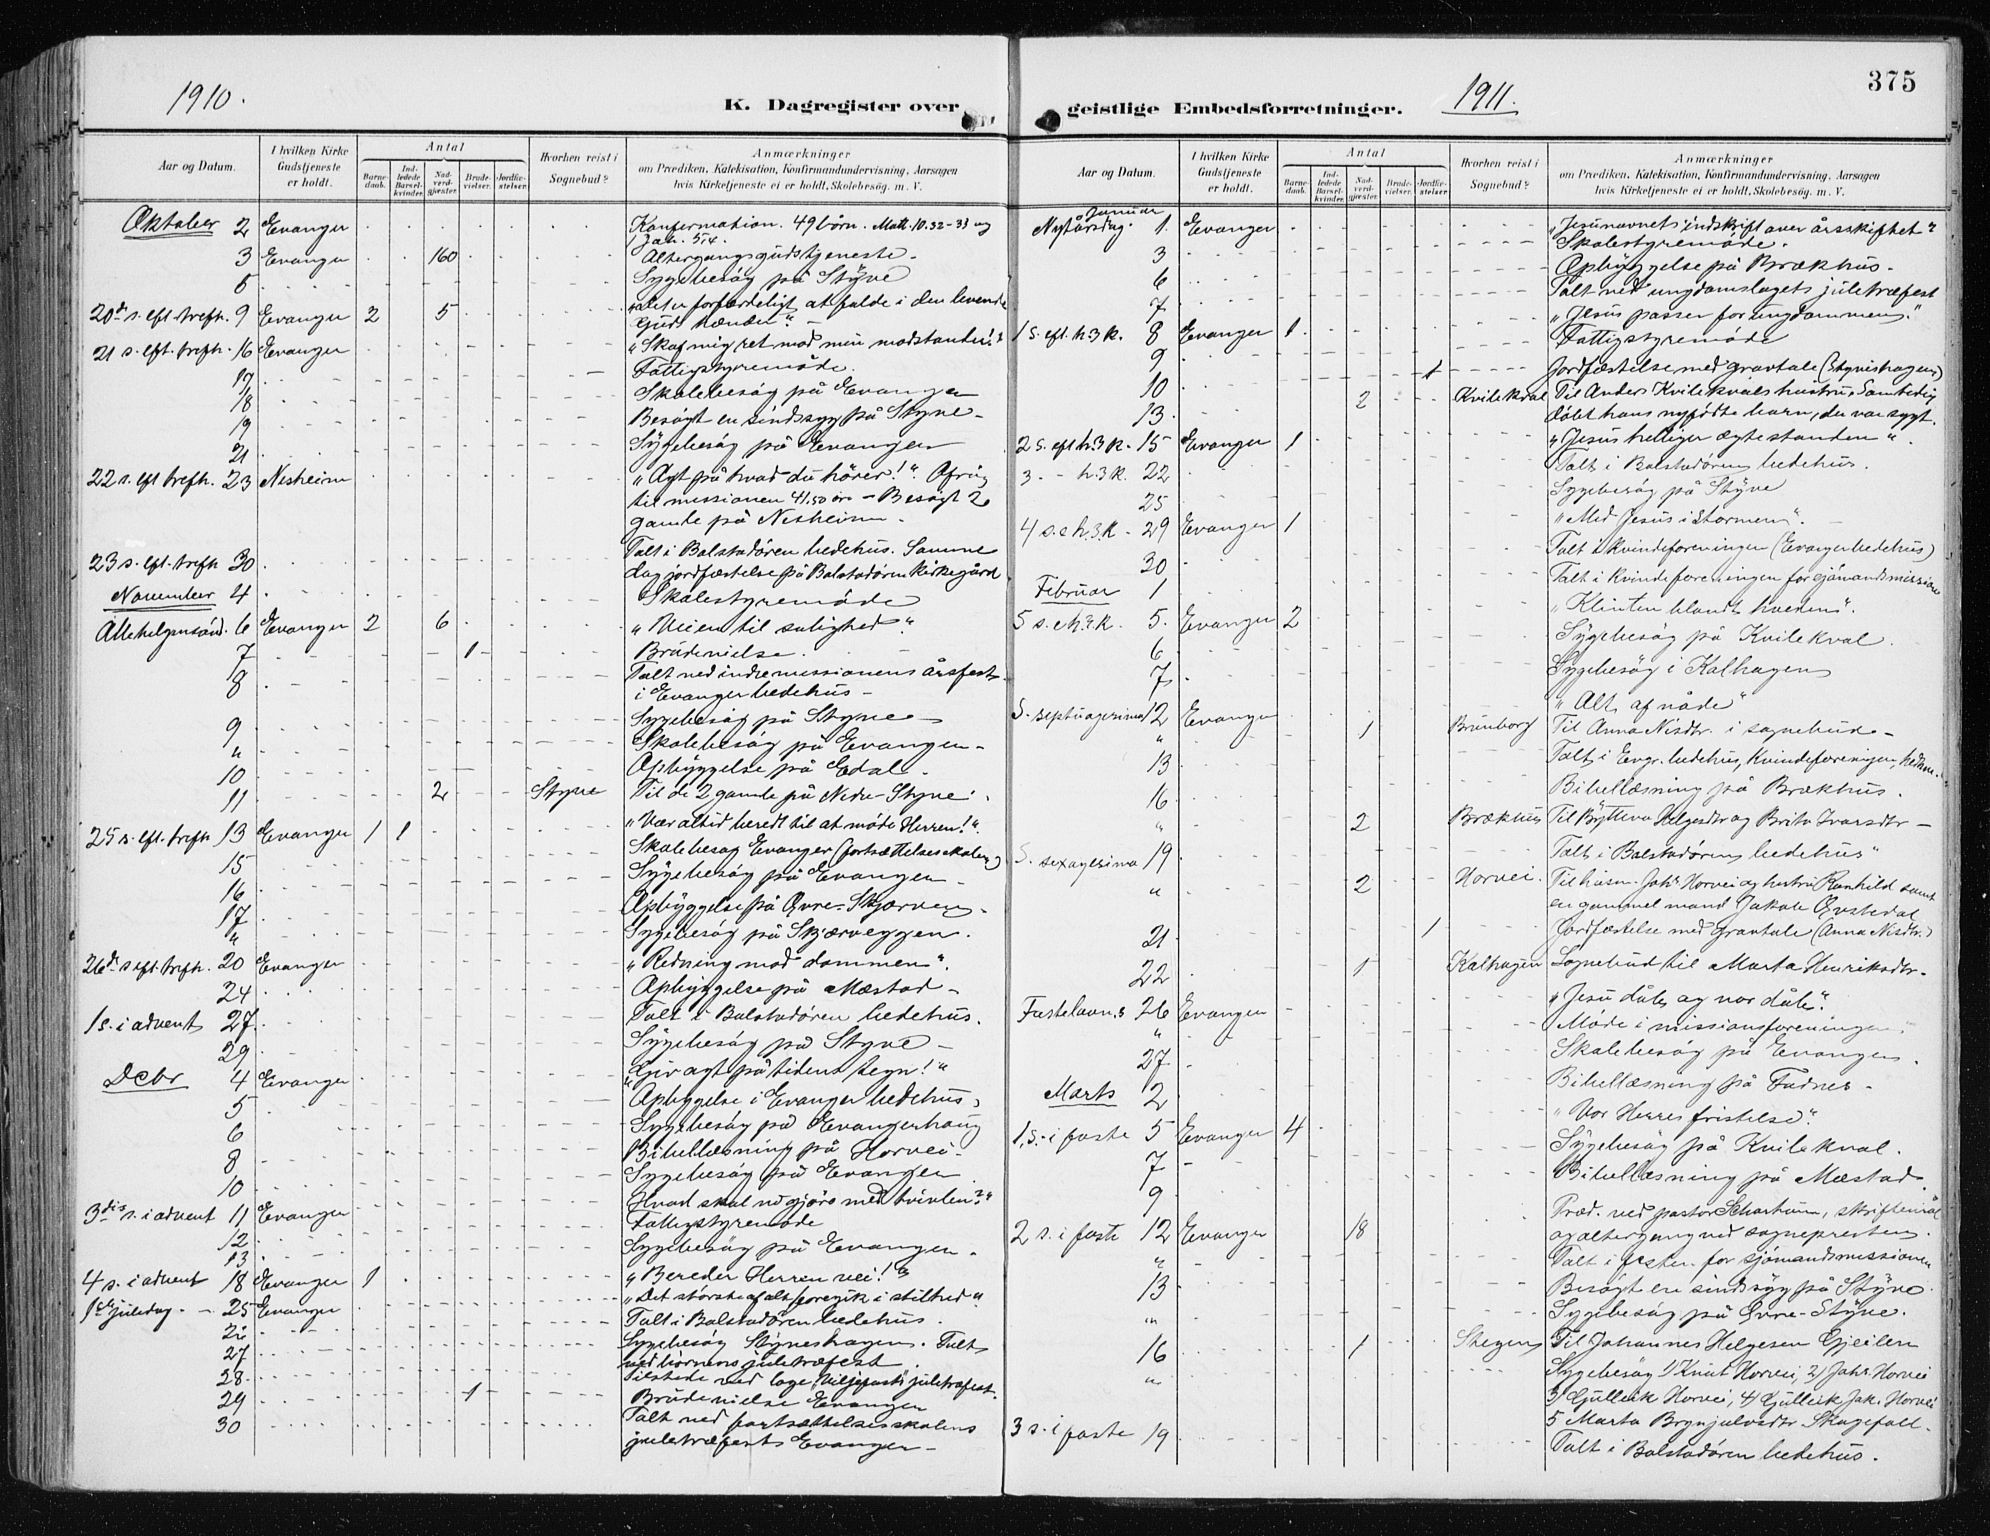 1910.
K. Dagregister over
Aar og Datum.
I hvilken Kirke Gudstjeneste er holdt.
Antal
Barnedaab.
Indledede Barselkvinder.
Nadverdgjæster.
Brudevielser.
Jordfæstelser.
Hvorhen reist i Sognebud?
Anmærkninger
om Prædiken, Katekisation, Konfirmandundervisning, Aarsagen
hvis Kirketjeneste ei er holdt, Skolebesøg. m. V.
Oktober 2 Evanger Konfermation. 49 börn. Matt. 10.32-33 og
1 Joh. 5,4.
3 Evanger 160 Altergangsgudstjeneste.
5 Sygebesög på Styve
20de s. eft. trefh. 9 Evanger 2 5 "Det er forfærdeligt at falde i den levende
Guds hænder".
21 s. eft. trefh. 16 Evanger "Skaf mig ret mod min modstander!"
17 Fattigstyremöde.
18 Skolebesög på Evanger
19 Besögt en sindssyg på Styve
21 Sygebesög på Evanger
22 s. eft trefh. 23 Nesheim "Agt på hvad du hörer!". Ofring
til missionen 41.50 öre - Besögt 2
gamle på Nesheim.
23 s. eft. trefh 30 Talt i Bolstadören bedehus. Samme
dag jordfæstelse på Bolstadören kirkegård
November 4 Skolestyremöde
Allehelgensönd. 6 Evanger 2 6 "Veien til salighed".
7 1 Brudevielse.
8 Talt ved indremissionens årsfest
i Evanger bedehus
9 Sygebesög på Styve
" Skolebesög på Evanger
10 Opbyggelse på Edal.
11 2 Styve Til de 2 gamle på Nedre-Styve.
25 s. eft. trefh 13 Evanger 1 1 "Vær altid beredt til at möde Herren!".
15 Skolebesög Evanger (fortsættelsesskolen)
16 Sygebesög på Evanger
17 Opbyggelse på Övre-Skjerven.
" Sygebesög på Skjerveggen.
26de s eft. trefh. 20 Evanger "Redning mod dommen".
24 Opbyggelse på Mæstad
1 s. i advent 27 Talt i Bolstadören bedehus.
29 Sygebesög på Styve
Debr 4 Evanger "Giv agt på tidens tegn!"
5 Opbyggelse i Evanger bedehus
6 Sygebesög på Evangerhaug
8 Bibellæsning på Horvei
10 Sygebesög på Evanger
3die s. i advent 11 Evanger Hvad skal vi gjöre med tvivlen?"
12 Fattigstyremöde
13 Sygebesög på Evanger.
4 s. i advent 18 Evanger 1 "Bereder Herren vei!"
1ste juledag. 25 Evanger "Det störste af alt foregik i stilhed".
26 Talt i Bolstadören bedehus.
27 Sygebesög Styveshagen. Talt
ved börnens juletræfest
28 Tilstede ved loge juletræfest.
29 1 Brudevielse Evanger
30 Talt ved fortsættelsesskolens
juletræfest Evanger
375
1911.
geistlige Embedsforretninger.
Aar og Datum.
I hvilken Kirke Gudstjeneste er holdt.
Antal
Barnedaab.
Indledede Barselkvinder.
Nadverdgjæster.
Brudevielser.
Jordfæstelser.
Hvorhen reist i Sognebud?
Anmærkninger
om Prædiken, Katekisation, Konfirmandundervisning, Aarsagen
hvis Kirketjeneste ei er holdt, Skolebesøg. m. V.
Januar
Nytårsdag. 1. Evanger "Jesunavnets indskrift over årsskiftet"
3 Skolestyremöde.
6 Opbyggelse på Brækhus.
7 Talt ved ungdomslagets juletræfest
1 s. eft. h.3k. 8 Evanger 1 "Jesus passer for ungdommen."
9 Fattigstyremöde
10 1 Jordfæstelse med gravtale (Styveshagen)
13 2 Kvilekval Til Anders Kvilekvals hustru. Samtidig
döbt hans nyfödte barn, der var sygt.
2 s. eft h.3k. 15 Evanger 1 "Jesus helliger ægtestanden".
3. - h.3k. 22 Talt i Bolstadören bedehus.
25 Sygebesög på Styve
4 s. e h.3k. 29 Evanger 1 "Med Jesus i Stormen".
30 Talt i kvindeforeningen (Evanger bedehus)
Februar 1 Talt i kvindeforeningen for sjömandsmission
5 s. e h.3.k. 5. Evanger 2 "Klinten blandt hveden".
6 Sygebesög på Kvilekval.
7 Sygebesög i Kalhagen
S. septuagesima 12 Evanger "Alt af nåde"
" 1 Brunborg Til Anna Nisdtr. i sognebud
13 Talt i Evgr. bedehus, kvindeforeningen,
16 Bibellæsning på Brækhus.
" 2 Brækhus Til Helgesdtr og Brita Ivarsdtr
S. sexagesima 19 Talt i Bolstadören bedehus
" 2 Horvei. Til husm. Joh. Horvei og hustru Ranhild samt
en gammel mand Jakob Övstedal
21 1 Jordfæstelse med gravtale (Anna Nisdtr.)
22 1 Kalhagen Sognebud til Marta Henriksdtr.
Fastelavns 26 Evanger "Jesu dåb og vor dåb".
" Möde i missionsforeningen.
27 Skolebesög på Evanger.
Marts 2 Bibellæsning på Fadnes
1. s. i faste 5 Evanger 4 "Vor Herres fristelse".
7 Sygebesög på Kvilekval.
9 Bibellæsning på Mæstad.
2 s. i faste 12 Evanger 18 Præd. ved pastor skriftemål
og altergang ved sognepresten.
" Talt i for sjömandsmissionen
13 Besögt en sindssyg på Styve.
" Sygebesög på Övre-Styve.
16 1 Stegen Til Johannes Helgesen Gjeilen
" Sygebesög 1) Knut Horvei, 2) Joh. Horvei
3) Gulleik Horvei, 4) Gulleik Jak. Horvei
5 Marta Brynjulvsdtr Skagefald
3 s. i faste 19 Talt i Bolstadören bedehus.